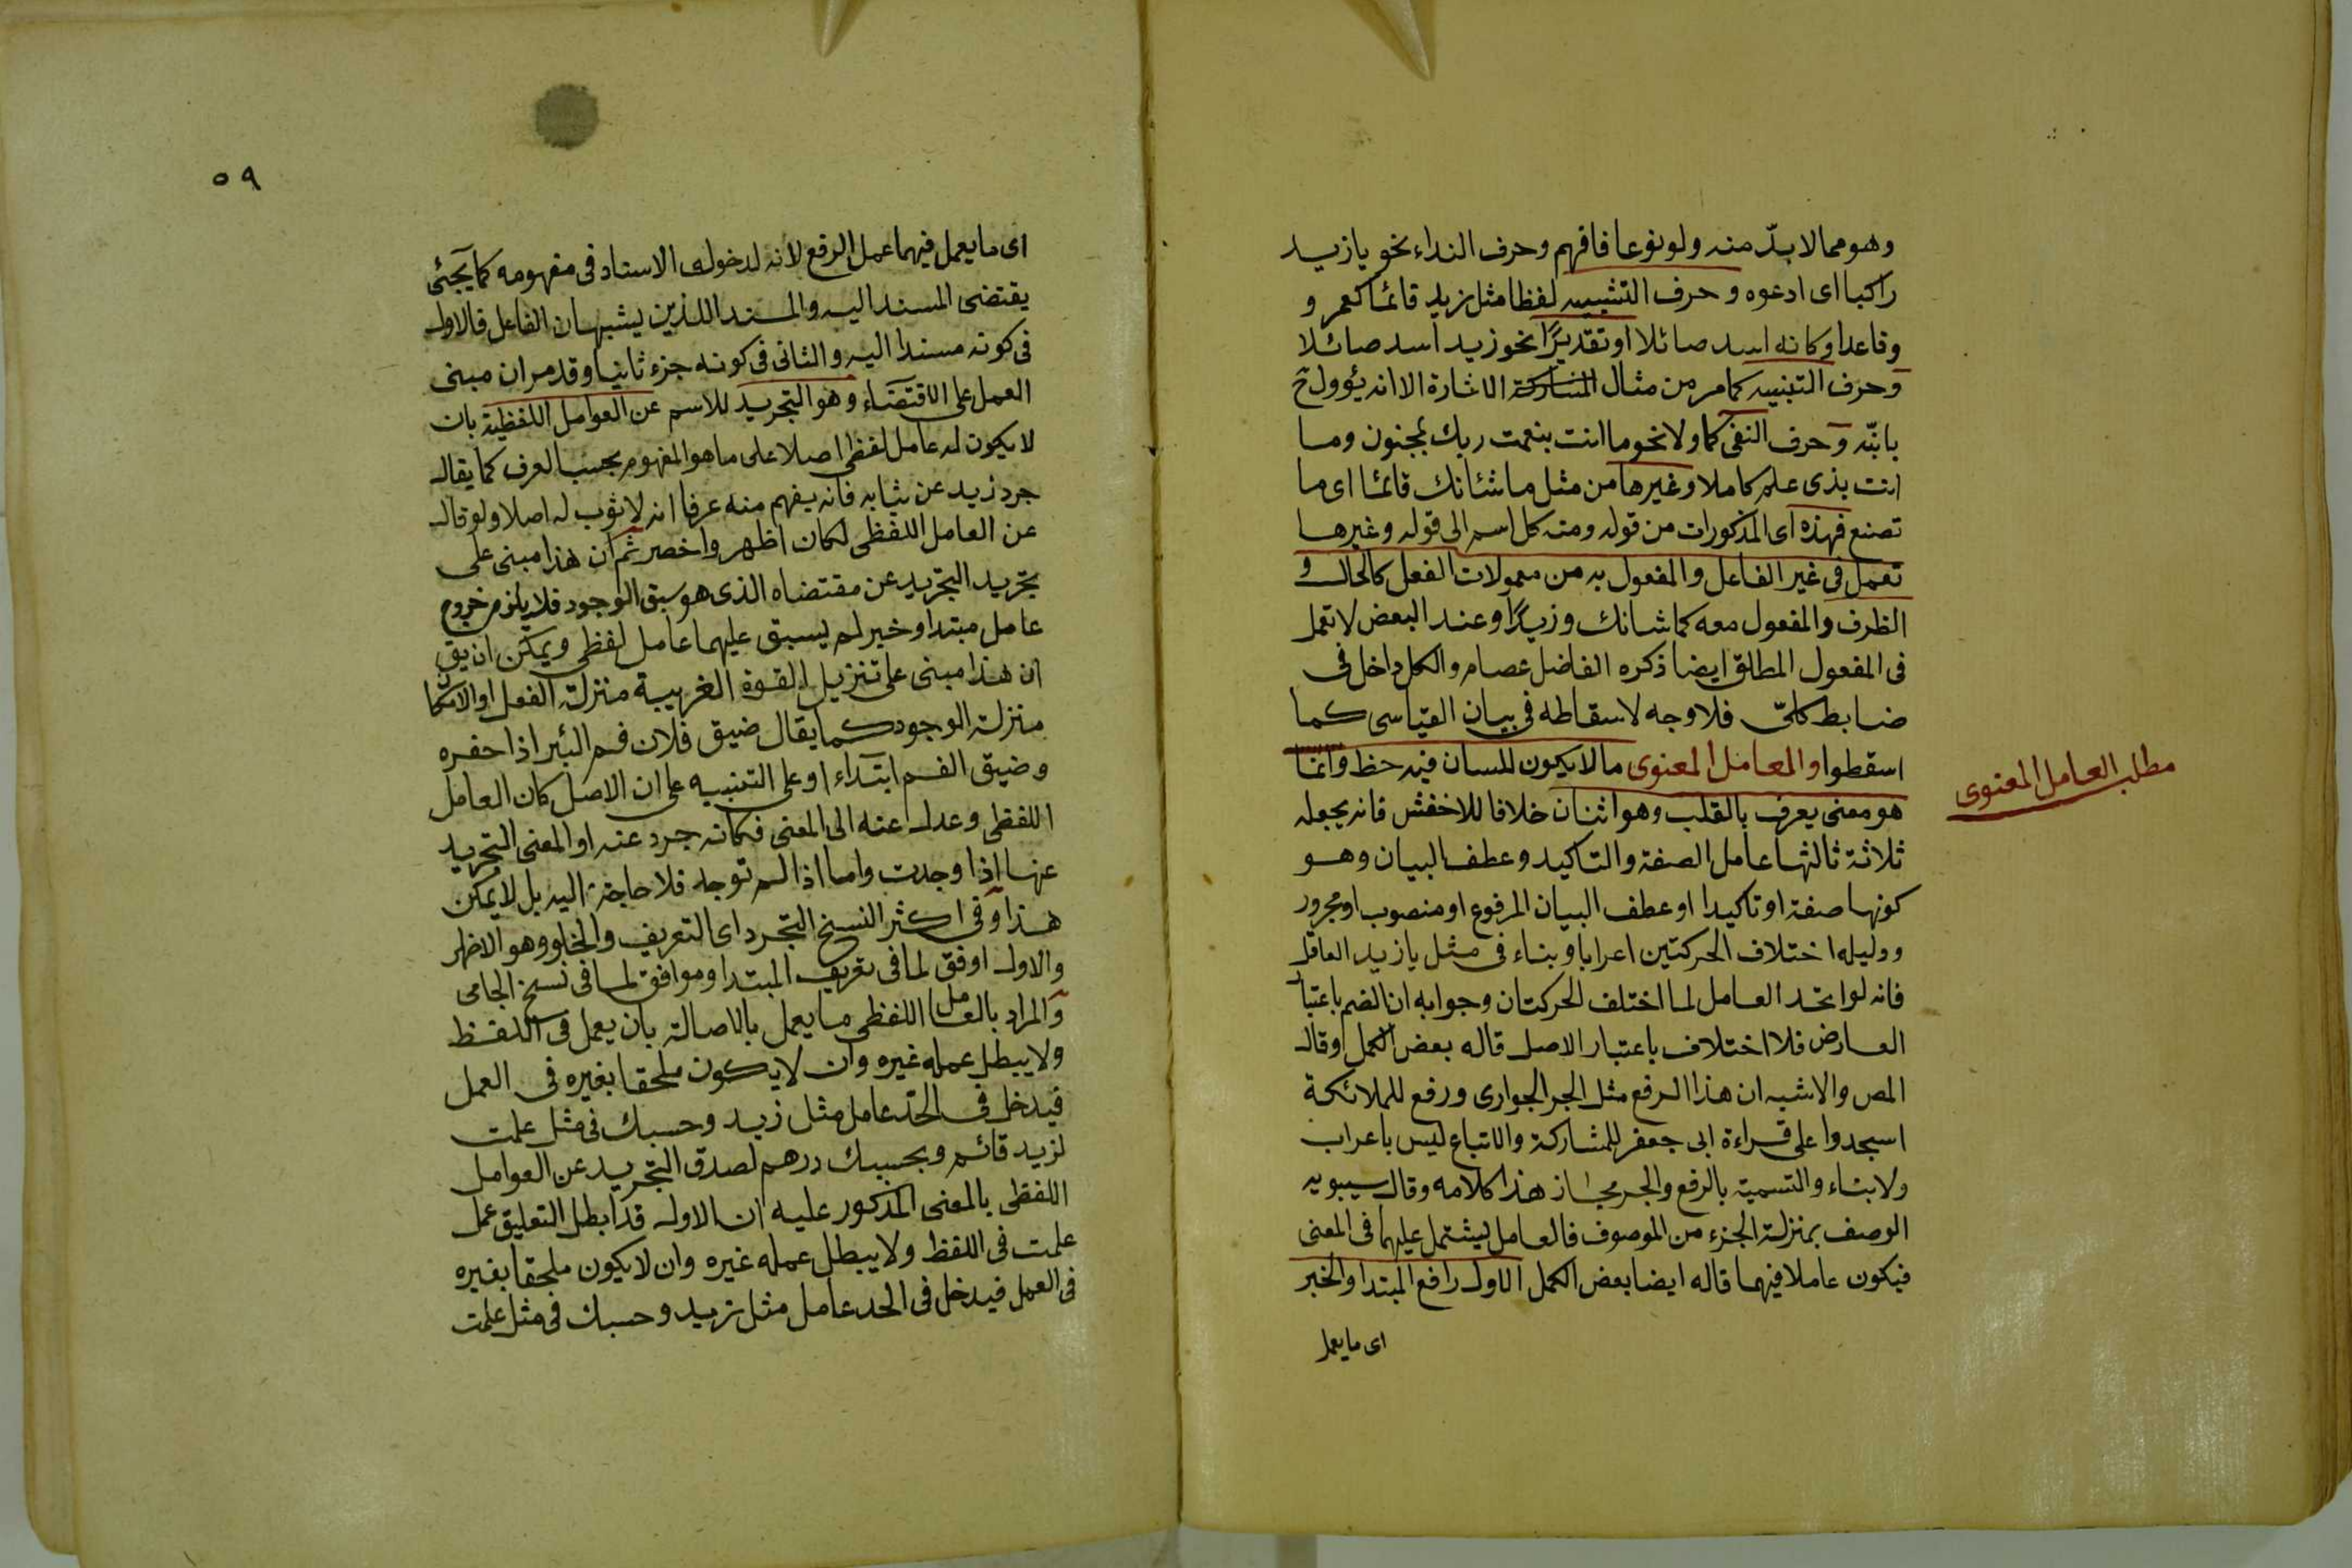 وهو مما لا بدّ منه ولو نوعا فافهم وحرف النداء نحو يا زيد
راكبا اى ادعوه وحرف التشبيه لفظا مثل زيد قائما كعمر و
وقاعدا وكانه اسد صائلا او تقديرًا نحو زيد اسد صائلا
وحرف التنبيه كما مر من مثال المشاركة الاشارة الا انه يئوول ح
بانبّه وحرف النفى كما ولا نحو ما انت بنعمت ربك بمجنون وما
انت بذى علم كاملا وغيرها من مثل ما شئانك قائما اى ما
تصنع فهذه اى المذكورات من قوله ومنه كل اسم الى قوله وغيرها
تعمل فى غير الفاعل والمفعول به من معمولات الفعل كالحال و
الظرف والمفعول معه كما شانك وزيدًا وعند البعض لا تعمل
فى المفعول المطلق ايضا ذكره الفاضل عصام والكل داخل فى
ضابط كلىّ فلا وجه لاسقاطه فى بيان القياسى كما
اسقطوا والعامل المعنوى ما لا يكون للسان فيه حظ وانما
مطلب العامل المعنوى
هو معنى يعرف بالقلب وهو اثنان خلافا للاخفش فانه يجعله
ثلاثة ثالثها عامل الصفة والتاكيد وعطف البيان وهو
كونها صفة او تاكيدا او عطف البيان المرفوع او منصوب او مجرور
ودليله اختلاف الحركتين اعرابا وبناء فى مثل يا زيد العاقل
فانه لو اتحد العامل لما اختلف الحركتان وجوابه ان الضم باعتبار
العارض فلا اختلاف باعتبار الاصل قاله بعض الكمل وقال
المص والاشبه ان هذا الرفع مثل الجر الجوارى ورفع للملائكة
اسجدوا على قراءة ابى جعفر للمشاركة والاتباع ليس باعراب
ولا بناء والتسمية بالرفع والجر مجاز هذا كلامه وقال سيبويه
الوصف بمنزلة الجزء من الموصوف فالعامل يشتمل عليهما فى المعنى
فيكون عاملا فيهما قاله ايضا بعض الكمل الاول رافع المبتدا والخبر
اى ما يعمل
٥٩
اى ما يعمل فيهما عمل الرفع لانه لدخول الاسناد فى مفهومه كما يجئى
يقتضى المسند اليه والمسند اللذين يشبهان الفاعل فالاول
فى كونه مسندا اليه والثانى فى كونه جزء ثانيا وقد مر ان مبنى
العمل على الاقتضاء وهو التجريد للاسم عن العوامل اللفظية بان
لا يكون له عامل لفظى اصلا على ما هو المفهوم بحسب العرف كما يقال
جرد زيد عن ثيابه فانه يفهم منه عرفا انه لا ثوب له اصلا ولو قال
عن العامل اللفظى لكان اظهر واخصر ثم ان هذا مبنى على
تجريد التجريد عن مقتضاه الذى هو سبق الوجود فلا يلزم خروج
عامل مبتدا وخبر لم يسبق عليهما عامل لفظى ويمكن ان يق
ان هذا مبنى على تنزيل القوة الغريبة منزلة الفعل او الامكان
منزلة الوجود كما يقال ضيق فلان فم البئر اذا حفره
وضيق الفم ابتداء او على التنبيه على ان الاصل كان العامل
اللفظى وعدل عنه الى المعنى فكانه جرد عنه او المعنى التجريد
عنها اذا وجدت واما اذا لم توجد فلا حاجة اليه بل لا يمكن
هذا وفى اكثر النسخ التجرد اى التعريف والخلو وهو الاظهر
والاول اوفق لما فى تعريف المبتدا وموافق لما فى نسخ الجامى
والمراد بالعامل اللفظى ما يعمل بالاصالة بان يعمل فى اللفظ
ولا يبطل عمله غيره وان لا يكون ملحقا بغيره فى العمل
فيدخل فى الحدّ عامل مثل زيد وحسبك فى مثل علمت
لزيد قائم وبحسبك درهم لصدق التجريد عن العوامل
اللفظى بالمعنى المذكور عليه ان الاول قد ابطل التعليق عمل
علمت فى اللفظ ولا يبطل عمله غيره وان لا يكون ملحقا بغيره
فى العمل فيدخل فى الحد عامل مثل زيد وحسبك فى مثل علمت